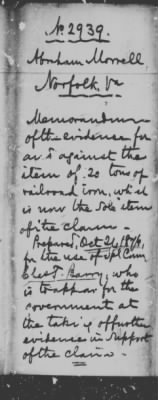 No. 2939.
Abraham Morrell
Norfolk, Va
Memorandum
of the evidence for
and against the
item of 20 tons of
railroad iron, which
is now the sole item
of the claim.
Prepared, Oct 21, 1874,
for the use of Spl Com
Chas T. Barry, who
is to appear for the
government at
the taking of further
evidence in support
of the claim.